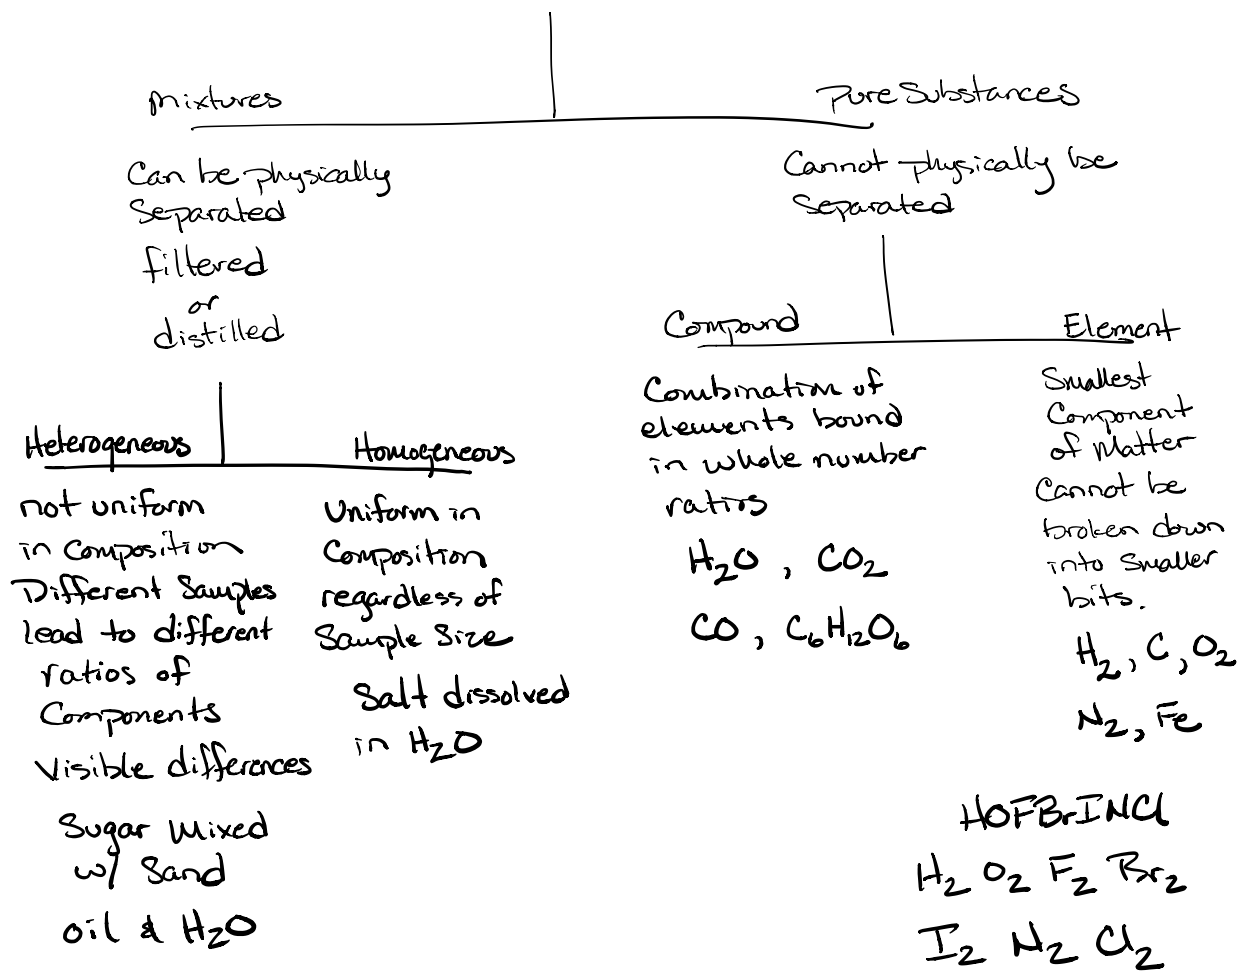 Mixtures
Pure Substances
Can be physically
Separated
filtered
or
distilled
Cannot physically be
Separated
Heterogeneous
not uniform
in Composition
Different Samples
lead to different
ratios of
Components
Visible differences
Sugar Mixed
w/ Sand
oil & H₂O
Homogeneous
Uniform in
Composition
regardless of
Sample Size
Salt dissolved
in H₂O
Compound
Combination of
elements bound
in whole number
ratios
H₂O , CO₂
CO , C₆H₁₂O₆
Element
Smallest
Component
of Matter
Cannot be
broken down
into Smaller
bits.
H₂, C, O₂
N₂, Fe
HOFBrINCl
H₂ O₂ F₂ Br₂
I₂ N₂ Cl₂